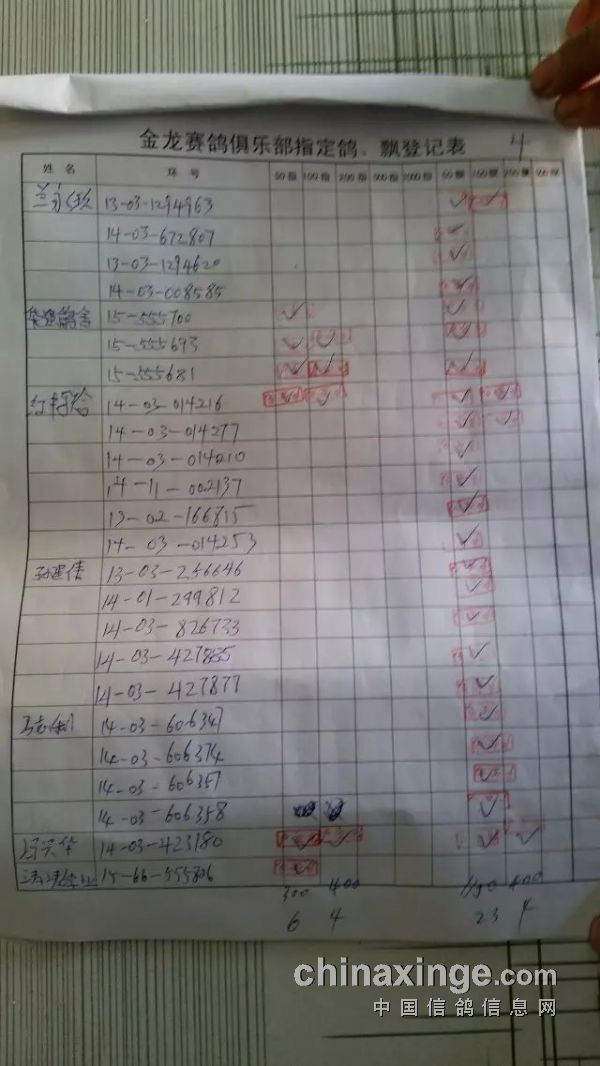 金龙赛鸽俱乐部指定鸽、飘登记表 4
姓 名 环 号 50指 100指 200指 500指 1000指 50飘 100飘 200飘 500飘
13-03-1294963
14-03-672807
13-03-1294620
14-03-008585
15-555700
15-555693
15-555681
14-03-014216
14-03-014277
14-03-014210
14-11-002137
13-02-166815
14-03-014253
13-03-256646
14-01-299812
14-03-826733
14-03-427885
14-03-427877
14-03-606347
14-03-606374
14-03-606357
14-03-606358
14-03-423180
15-66-555806
300 400 1150 400
6 4 23 4
chinaxinge.com
中国信鸽信息网